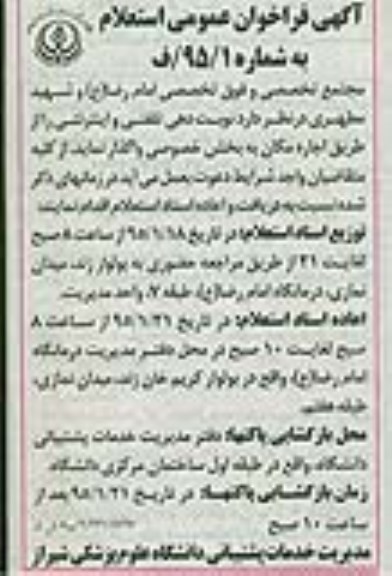 آگهی فراخوان عمومی استعلام
به شماره ۹۵/۱/ف
مجتمع تخصصی و فوق تخصصی امام رضا(ع) و شهید
مطهری در نظر دارد نوبت دهی تلفنی و اینترنتی را از
طریق اجاره مکان به بخش خصوصی واگذار نماید. از کلیه
متقاضیان واجد شرایط دعوت بعمل می آید در زمانهای ذکر
شده نسبت به دریافت و اعاده اسناد استعلام اقدام نمایند:
توزیع اسناد استعلام: در تاریخ ۹۵/۱/۱۸ از ساعت ۸ صبح
لغایت ۲۱ از طریق مراجعه حضوری به بولوار زند، میدان
نمازی، درمانگاه امام رضا(ع)، طبقه ۷، واحد مدیریت.
اعاده اسناد استعلام: در تاریخ ۹۵/۱/۲۱ از ساعت ۸
صبح لغایت ۱۰ صبح در محل دفتر مدیریت درمانگاه
امام رضا(ع)، واقع در بولوار کریم خان زند، میدان نمازی،
طبقه هفتم.
محل بازگشایی پاکتها: دفتر مدیریت خدمات پشتیبانی
دانشگاه واقع در طبقه اول ساختمان مرکزی دانشگاه.
زمان بازگشایی پاکتها: در تاریخ ۹۵/۱/۲۱ بعد از
ساعت ۱۰ صبح
مدیریت خدمات پشتیبانی دانشگاه علوم پزشکی شیراز